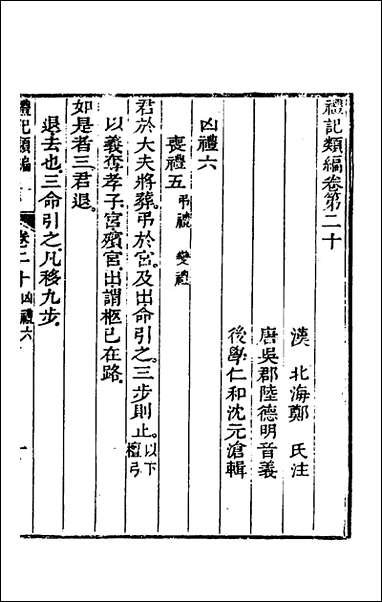 禮記類編卷第二十
漢 北海鄭 氏注
唐吳郡陸德明音義
後學仁和沈元滄輯
凶禮六
喪禮五 弔禮 變禮
君於大夫將葬弔於宮及出命引之三步則止。以下檀弓
以義奪孝子宮殯宮出謂柩已在路
如是者三君退。
退去也三命引之凡移九步
禮記類編 卷二十 凶禮六 一